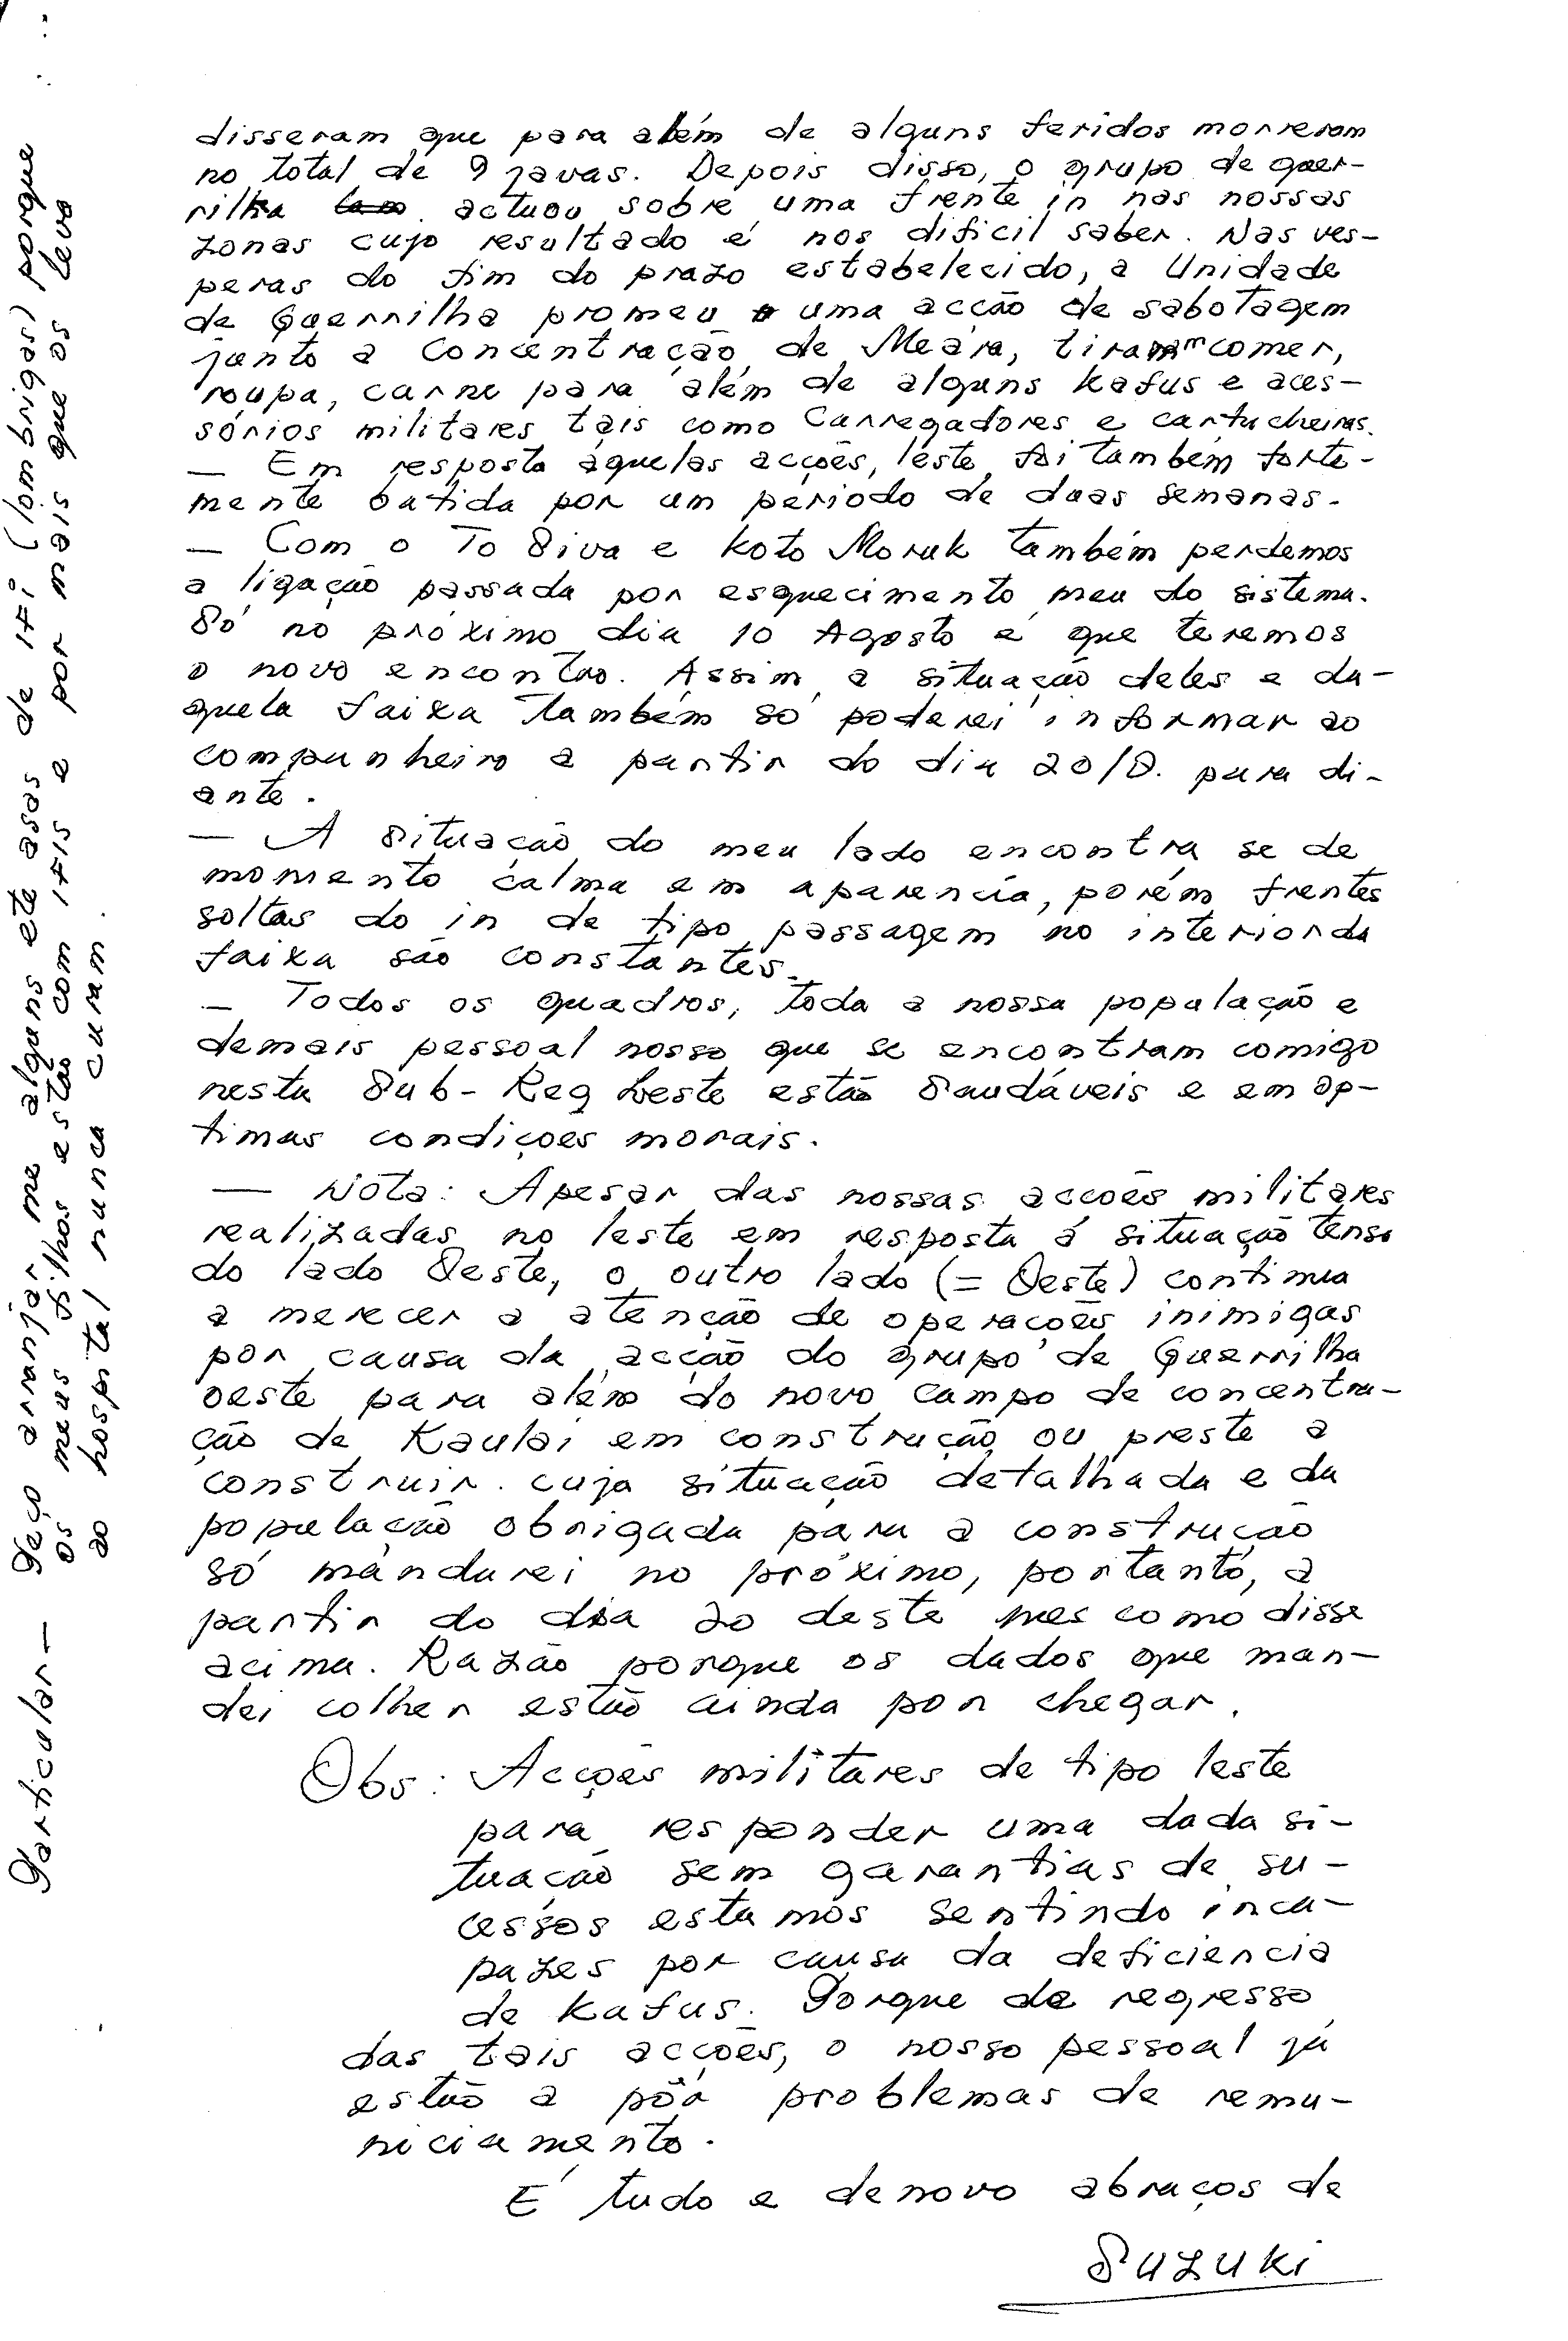 disseram que para além de alguns feridos morreram
no total de 9 javas. Depois disso, o grupo de guer-
rilha actuou sobre uma frente in nas nossas
zonas cujo resultado é nos dificil saber. Nas ves-
peras do fim do prazo estabelecido, a Unidade
de Guerrilha promeu uma acção de sabotagem
junto a Concentração de Meára, tiraram comer,
roupa, carne para além de alguns kafus e aces-
sórios militares tais como Carregadores e cartucheiras.
— Em resposta àquelas acções, leste foi também forte-
mente batida por um período de duas semanas.
— Com o To Siva e Koto Moruk também perdemos
a ligação passada por esquecimento meu do sistema.
Só no próximo dia 10 Agosto é que teremos
o novo encontro. Assim a situação deles e da-
quela faixa também só poderei informar ao
companheiro a partir do dia 20/8. para di-
ante.
— A situação do meu lado encontra se de
momento calma em aparencia, porém frentes
soltas do in de tipo passagem no interior da
faixa são constantes.
— Todos os quadros, toda a nossa população e
demais pessoal nosso que se encontram comigo
nesta Sub-Reg Leste estão Saudáveis e em óp-
timas condições morais.
— Nota: Apesar das nossas acções militares
realizadas no leste em resposta á situação tensa
do lado Oeste, o outro lado (= Oeste) continua
a merecer a atenção de operações inimigas
por causa da acção do grupo de Guerrilha
oeste para além do novo campo de concentra-
ção de Kaulai em construção ou preste a
construir. cuja situação detalhada e da
população obrigada para a construção
só mandarei no próximo, portanto, a
partir do dia 20 deste mes como disse
acima. Razão porque os dados que man-
dei colher estão ainda por chegar.
Obs: Acções militares de tipo leste
para responder uma dada si-
tuação sem garantias de su-
cessos estamos sentindo inca-
pazes por causa da deficiencia
de kafus. Porque de regresso
das tais acções, o nosso pessoal já
estão a pôr problemas de remu-
niciamento.
É tudo e denovo abraços de
Suzuki
Particular — Faço arranjar me alguns ete asas de ití (lombrigas) porque
os meus filhos estão com itis e por mais que os levo
ao hospital nunca curam.